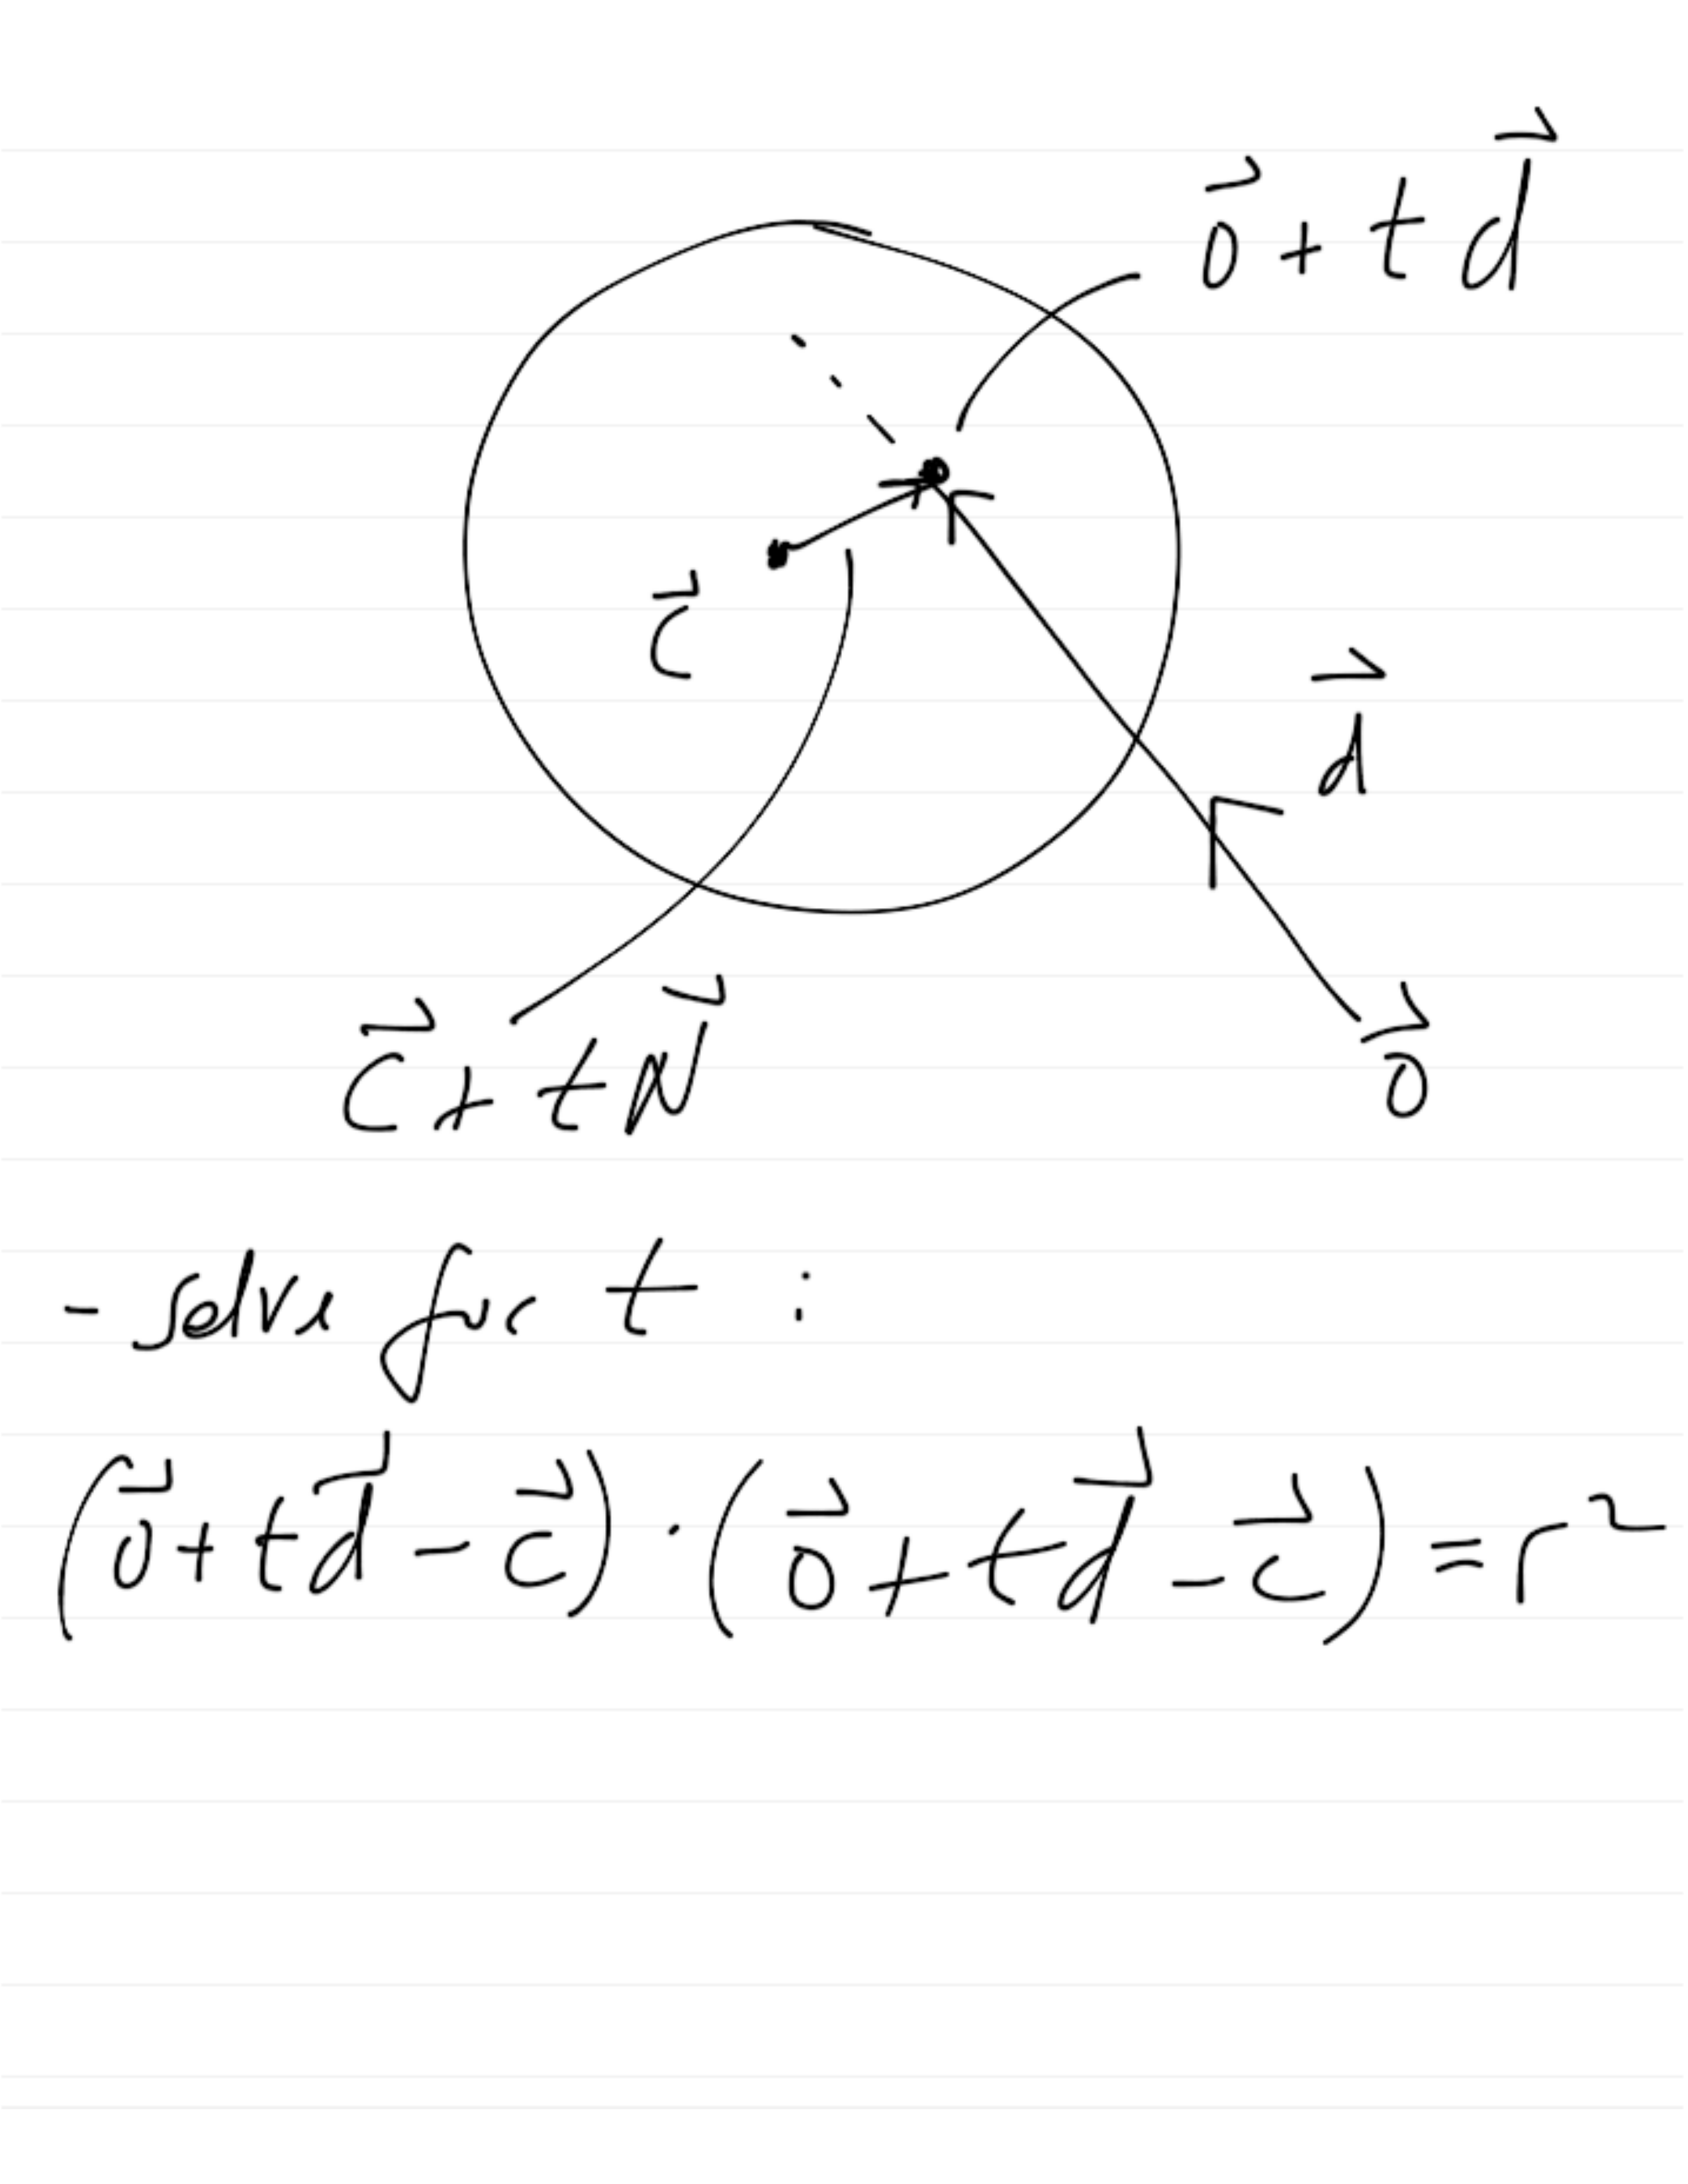 o⃗ + t d⃗
c⃗
d⃗
c⃗ + t N⃗
o⃗
- solve for t :
(o⃗ + t d⃗ - c⃗) · (o⃗ + t d⃗ - c⃗) = r²